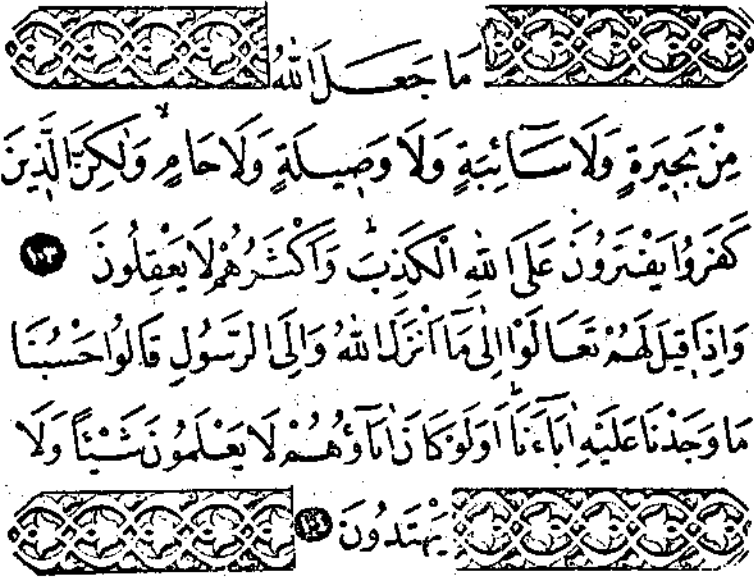 مَا جَعَلَ اللّٰهُ
مِنْ بَحِيرَةٍ وَلَا سَٓائِبَةٍ وَلَا وَصِيلَةٍ وَلَا حَامٍۙ وَلٰكِنَّ الَّذِينَ
كَفَرُوا يَفْتَرُونَ عَلَى اللّٰهِ الْكَذِبَۜ وَاَكْثَرُهُمْ لَا يَعْقِلُونَ ﴿١٠٣﴾
وَاِذَا قِيلَ لَهُمْ تَعَالَوْا اِلٰى مَٓا اَنْزَلَ اللّٰهُ وَاِلَى الرَّسُولِ قَالُوا حَسْبُنَا
مَا وَجَدْنَا عَلَيْهِ اٰبَٓاءَنَاۜ اَوَلَوْ كَانَ اٰبَٓاؤُ۬هُمْ لَا يَعْلَمُونَ شَيْـًٔا وَلَا
يَهْتَدُونَ ﴿١٠٤﴾